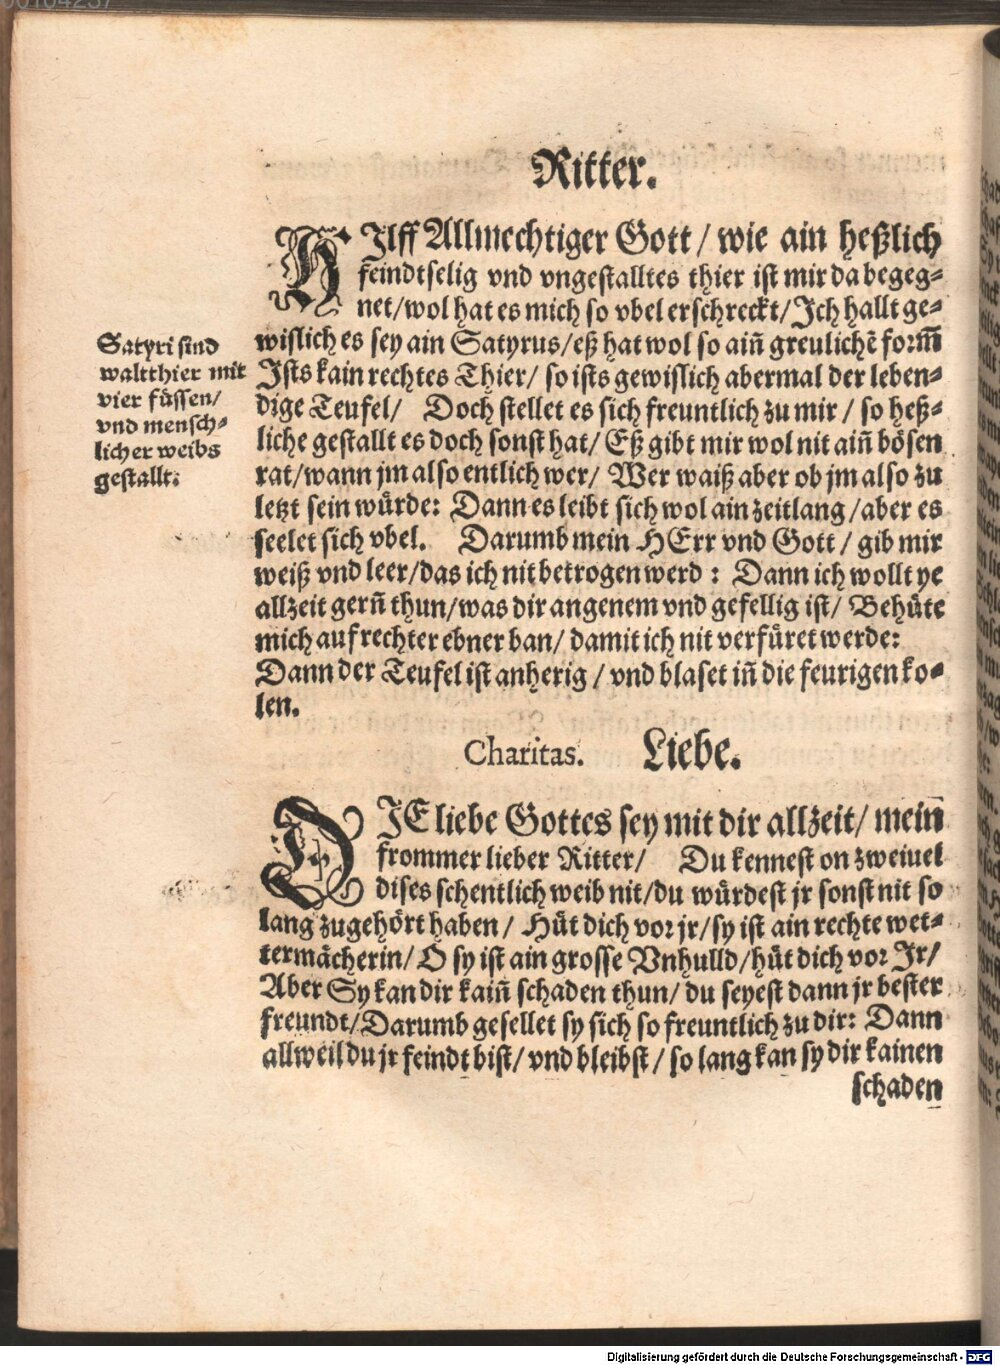 Ritter.
HIlff Allmechtiger Gott / wie ain heßlich
feindtselig vnd vngestalltes thier ist mir da begeg-
net/wol hat es mich so vbel erschreckt/Ich hallt ge-
wislich es sey ain Satyrus/eß hat wol so aiñ greulichẽ form̃
Ists kain rechtes Thier/ so ists gewislich abermal der leben-
dige Teufel/ Doch stellet es sich freuntlich zu mir / so heß-
liche gestallt es doch sonst hat/ Eß gibt mir wol nit aiñ bösen
rat/wann jm also entlich wer/ Wer waiß aber ob jm also zu
letzt sein würde: Dann es leibt sich wol ain zeitlang/aber es
seelet sich vbel. Darumb mein HErr vnd Gott / gib mir
weiß vnd leer/das ich nit betrogen werd : Dann ich wollt ye
allzeit gerñ thun/was dir angenem vnd gefellig ist/ Behüte
mich auf rechter ebner ban/ damit ich nit verfüret werde:
Dann der Teufel ist anherig / vnd blaset iñ die feurigen ko-
len.
Satyri sind
waltthier mit
vier füssen/
vnd mensch-
licher weibs
gestallt:
Charitas. Liebe.
DIE liebe Gottes sey mit dir allzeit/ mein
frommer lieber Ritter/ Du kennest on zweiuel
dises schentlich weib nit/du würdest jr sonst nit so
lang zugehört haben/ Hüt dich vor jr/sy ist ain rechte wet-
termächerin/ O sy ist ain grosse Vnhulld/hüt dich vor Ir/
Aber Sy kan dir kaiñ schaden thun/ du seyest dann jr bester
freundt/Darumb gesellet sy sich so freuntlich zu dir: Dann
allweil du jr feindt bist/ vnd bleibst/ so lang kan sy dir kainen
schaden
Digitalisierung gefördert durch die Deutsche Forschungsgemeinschaft - DFG